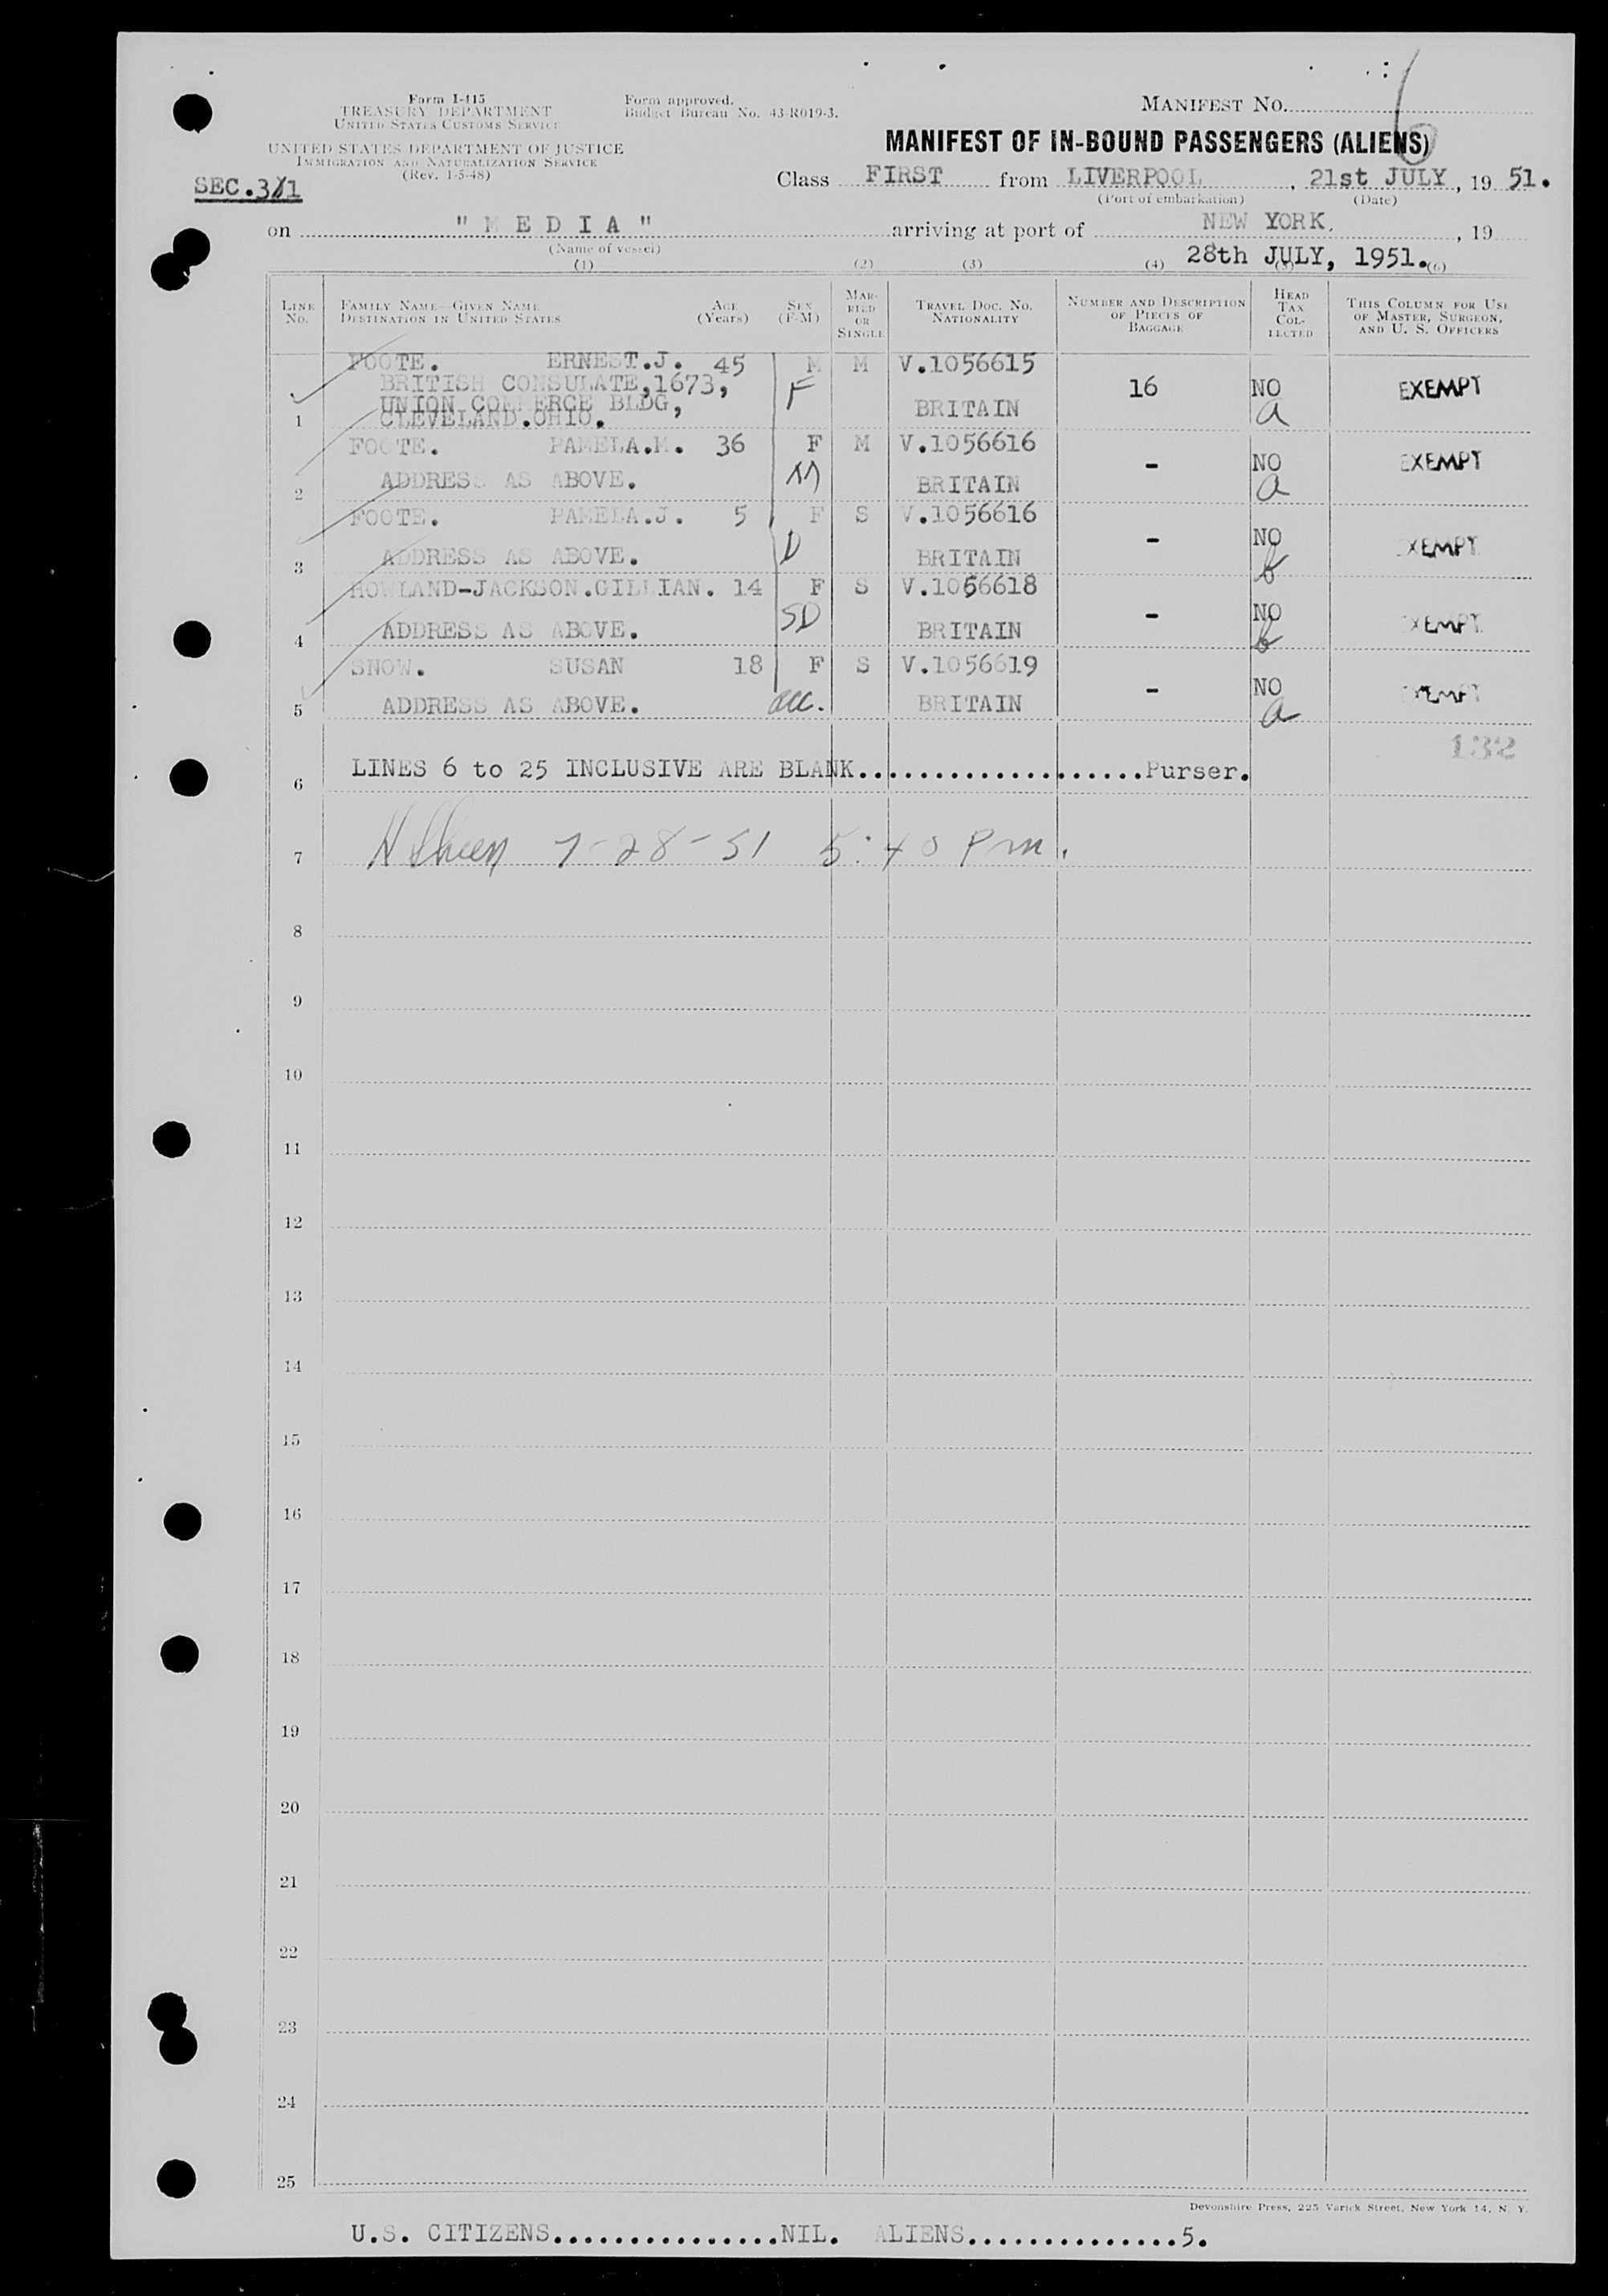 Form I-415
TREASURY DEPARTMENT
UNITED STATES CUSTOMS SERVICE
UNITED STATES DEPARTMENT OF JUSTICE
IMMIGRATION AND NATURALIZATION SERVICE
(Rev. 1-5-48)
Form approved.
Budget Bureau No. 43-R019-3.
MANIFEST NO.
MANIFEST OF IN-BOUND PASSENGERS (ALIENS)
SEC.3/1
Class FIRST from LIVERPOOL, 21st JULY, 19 51.
(Port of embarkation) (Date)
on "MEDIA" arriving at port of NEW YORK, 19
(Name of vessel)
28th JULY, 1951.
(1) (2) (3) (4) (5) (6)
LINE NO. FAMILY NAME—GIVEN NAME DESTINATION IN UNITED STATES AGE (Years) SEX (F-M) MARRIED OR SINGLE TRAVEL DOC. NO. NATIONALITY NUMBER AND DESCRIPTION OF PIECES OF BAGGAGE HEAD TAX COLLECTED THIS COLUMN FOR USE OF MASTER, SURGEON, AND U. S. OFFICERS
FOOTE. ERNEST.J. 45 M M V.1056615
BRITISH CONSULATE,1673, F 16 NO EXEMPT
UNION COMMERCE BLDG, BRITAIN a
1 CLEVELAND.OHIO.
FOOTE. PAMELA.M. 36 F M V.1056616
- NO EXEMPT
2 ADDRESS AS ABOVE. M BRITAIN a
FOOTE. PAMELA.J. 5 F S V.1056616
- NO EXEMPT
3 ADDRESS AS ABOVE. D BRITAIN b
HOWLAND-JACKSON.GILLIAN. 14 F S V.1056618
- NO EXEMPT
4 ADDRESS AS ABOVE. SD BRITAIN b
SNOW. SUSAN 18 F S V.1056619
- NO EXEMPT
5 ADDRESS AS ABOVE. acc. BRITAIN a
132
6 LINES 6 to 25 INCLUSIVE ARE BLANK...................Purser.
7 7-28-51 5:40 Pm.
8
9
10
11
12
13
14
15
16
17
18
19
20
21
22
23
24
25
Devonshire Press, 225 Varick Street, New York 14, N. Y.
U.S. CITIZENS...............NIL. ALIENS..............5.